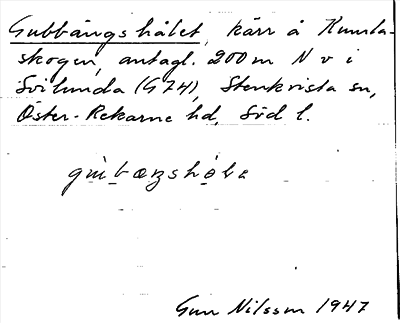 Gubbängshålet, kärr å Kumla-
skogen, antagl. 200 m N v i
Svilunda (G 74), Stenkvista sn,
Öster-Rekarne hd, Söd l.
Gun Nilsson 1947